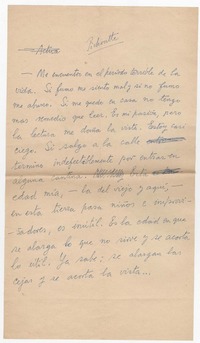 — Me encuentro en el periodo terrible de la
vida. Si fumo me siento mal y si no fumo
me aburro. Si me quedo en casa no tengo
mas remedio que leer. Es mi pasión, pero
la lectura me daña la vista. Estoy casi
ciego. Si salgo a la calle
termino indefectiblemente por entrar en
alguna cantina. Esta
edad mia, — la del viejo y aquí, —
en esta tierra para niños e
es inutil. Es la edad en que
se alarga lo que no sirve y se acorta
lo util. Ya sabe: se alargan las
cejas y se acorta la vista...